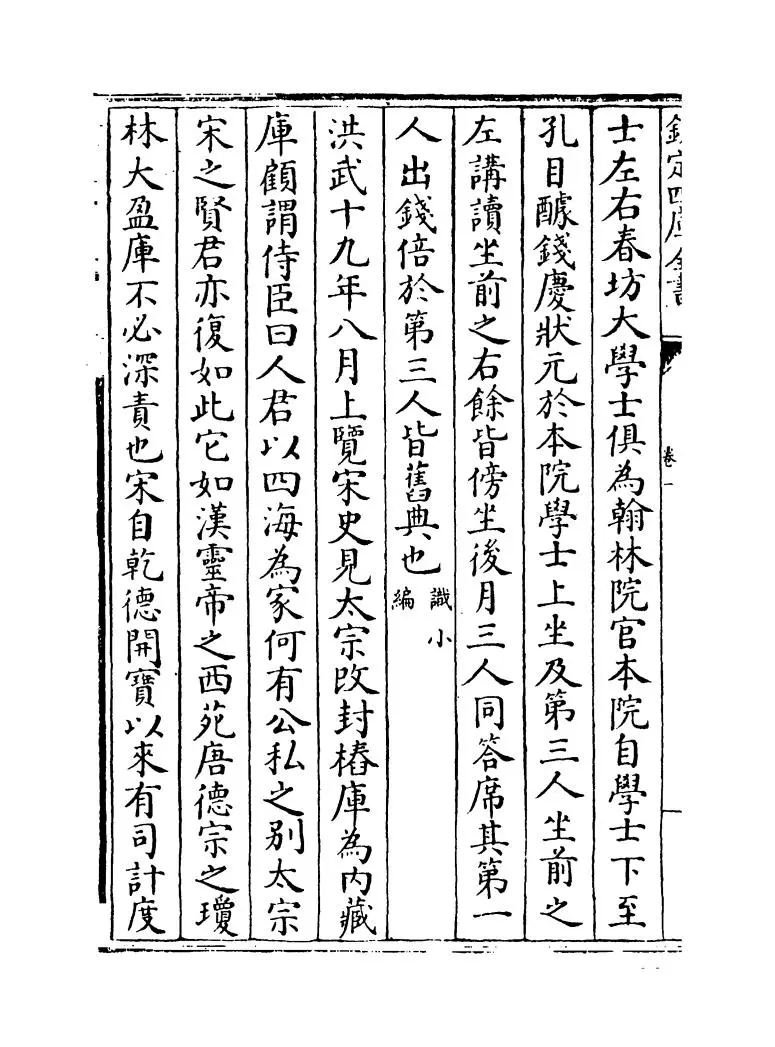 欽定四庫全書
卷一
士左右春坊大學士俱為翰林院官本院自學士下至
孔目醵錢慶狀元於本院學士上坐及第三人坐前之
左講讀坐前之右餘皆傍坐後月三人同答席其第一
人出錢倍於第三人皆舊典也識小編
洪武十九年八月上覽宋史見太宗改封樁庫為内藏
庫顧謂侍臣曰人君以四海為家何有公私之别太宗
宋之賢君亦復如此它如漢靈帝之西苑唐德宗之瓊
林大盈庫不必深責也宋自乾德開寶以來有司計度